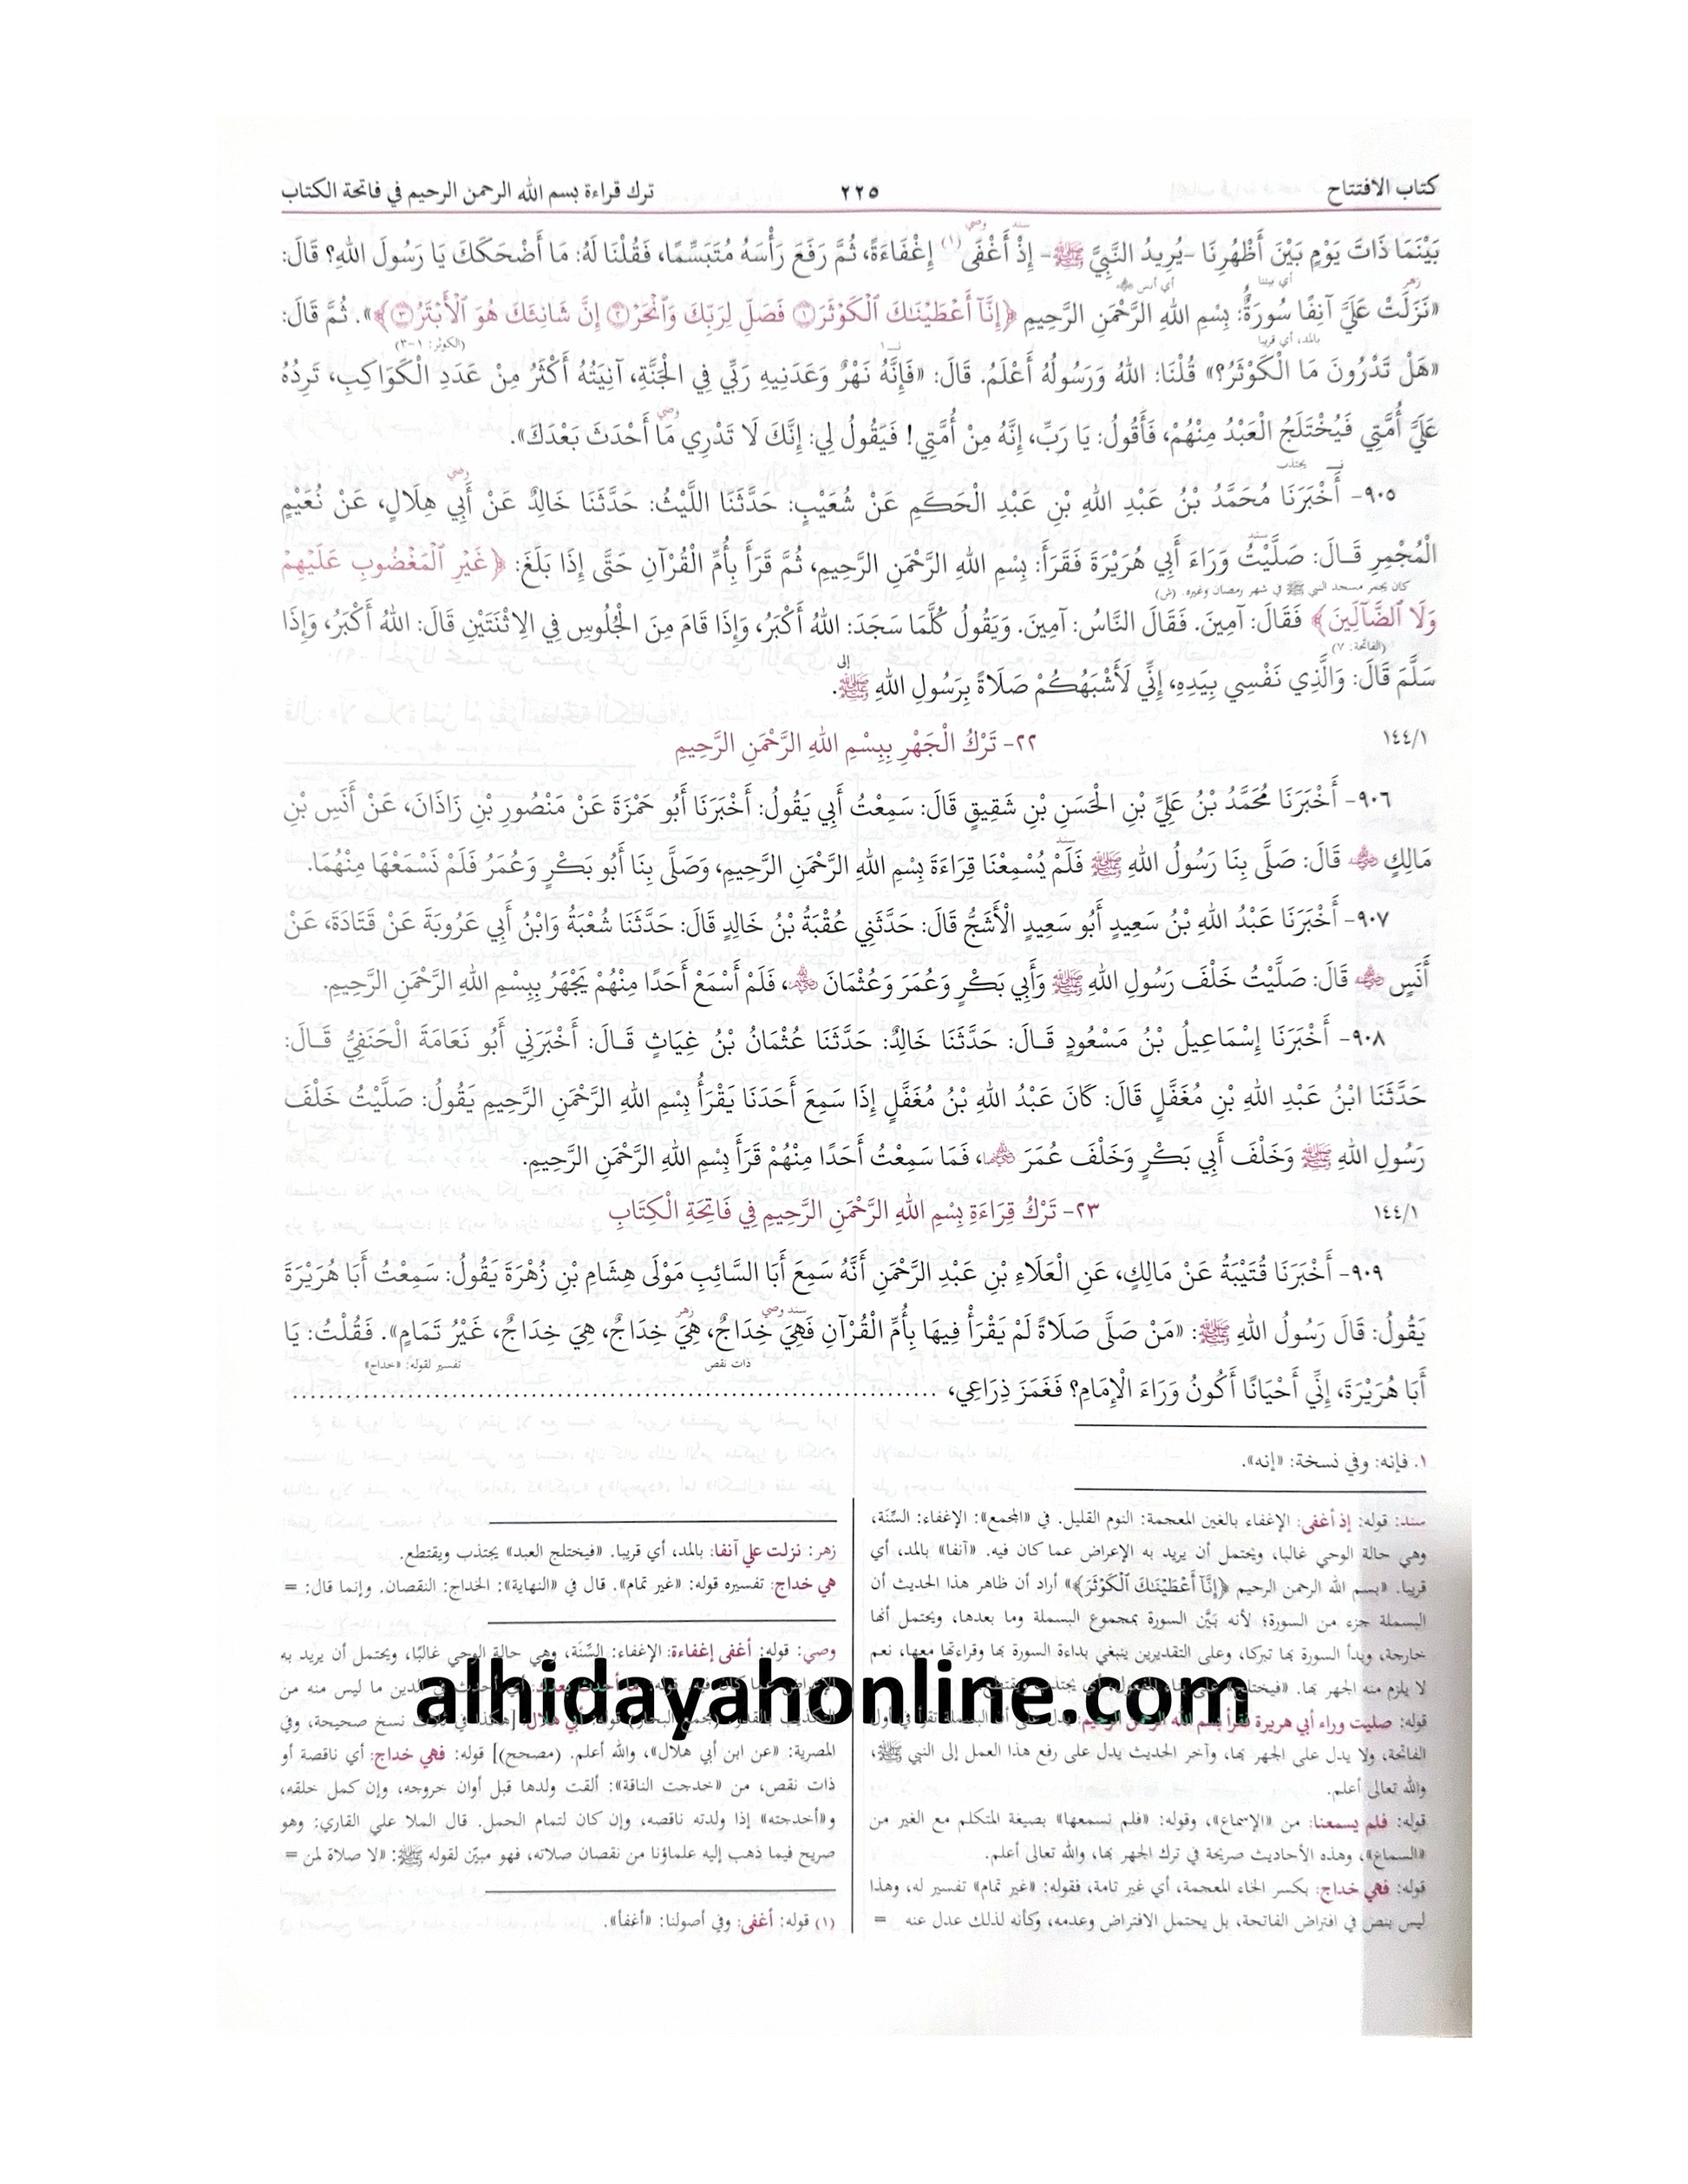 كتاب الافتتاح ٢٢٥ ترك قراءة بسم الله الرحمن الرحيم في فاتحة الكتاب
بَيْنَمَا ذَاتَ يَوْمٍ بَيْنَ أَظْهُرِنَا -يُرِيدُ النَّبِيَّ ﷺ- إِذْ أَغْفَى(١) إِغْفَاءَةً، ثُمَّ رَفَعَ رَأْسَهُ مُتَبَسِّمًا، فَقُلْنَا لَهُ: مَا أَضْحَكَكَ يَا رَسُولَ اللهِ؟ قَالَ:
«نَزَلَتْ عَلَيَّ آنِفًا سُورَةٌ: بِسْمِ اللهِ الرَّحْمَنِ الرَّحِيمِ ﴿إِنَّآ أَعْطَيْنَٰكَ ٱلْكَوْثَرَ ۝١ فَصَلِّ لِرَبِّكَ وَٱنْحَرْ ۝٢ إِنَّ شَانِئَكَ هُوَ ٱلْأَبْتَرُ ۝٣﴾». ثُمَّ قَالَ:
بالمد، أي قريبا (الكوثر: ١-٣)
«هَلْ تَدْرُونَ مَا الْكَوْثَرُ؟» قُلْنَا: اللهُ وَرَسُولُهُ أَعْلَمُ. قَالَ: «فَإِنَّهُ نَهْرٌ وَعَدَنِيهِ رَبِّي فِي الْجَنَّةِ، آنِيَتُهُ أَكْثَرُ مِنْ عَدَدِ الْكَوَاكِبِ، تَرِدُهُ
عَلَيَّ أُمَّتِي فَيُخْتَلَجُ الْعَبْدُ مِنْهُمْ، فَأَقُولُ: يَا رَبِّ، إِنَّهُ مِنْ أُمَّتِي! فَيَقُولُ لِي: إِنَّكَ لَا تَدْرِي مَا أَحْدَثَ بَعْدَكَ».
يجتذب
٩٠٥- أَخْبَرَنَا مُحَمَّدُ بْنُ عَبْدِ اللهِ بْنِ عَبْدِ الْحَكَمِ عَنْ شُعَيْبٍ: حَدَّثَنَا اللَّيْثُ: حَدَّثَنَا خَالِدٌ عَنْ أَبِي هِلَالٍ، عَنْ نُعَيْمٍ
الْمُجْمِرِ قَالَ: صَلَّيْتُ وَرَاءَ أَبِي هُرَيْرَةَ فَقَرَأَ: بِسْمِ اللهِ الرَّحْمَنِ الرَّحِيمِ، ثُمَّ قَرَأَ بِأُمِّ الْقُرْآنِ حَتَّى إِذَا بَلَغَ: ﴿غَيْرِ ٱلْمَغْضُوبِ عَلَيْهِمْ
كان يجمر مسجد النبي ﷺ في شهر رمضان وغيره. (ش)
وَلَا ٱلضَّآلِّينَ﴾ فَقَالَ: آمِينَ. فَقَالَ النَّاسُ: آمِينَ. وَيَقُولُ كُلَّمَا سَجَدَ: اللهُ أَكْبَرُ، وَإِذَا قَامَ مِنَ الْجُلُوسِ فِي الِاثْنَتَيْنِ قَالَ: اللهُ أَكْبَرُ، وَإِذَا
(الفاتحة: ٧)
سَلَّمَ قَالَ: وَالَّذِي نَفْسِي بِيَدِهِ، إِنِّي لَأَشْبَهُكُمْ صَلَاةً بِرَسُولِ اللهِ ﷺ.
١٤٤/١ ٢٢- تَرْكُ الْجَهْرِ بِبِسْمِ اللهِ الرَّحْمَنِ الرَّحِيمِ
٩٠٦- أَخْبَرَنَا مُحَمَّدُ بْنُ عَلِيِّ بْنِ الْحَسَنِ بْنِ شَقِيقٍ قَالَ: سَمِعْتُ أَبِي يَقُولُ: أَخْبَرَنَا أَبُو حَمْزَةَ عَنْ مَنْصُورِ بْنِ زَاذَانَ، عَنْ أَنَسِ بْنِ
مَالِكٍ ؓ قَالَ: صَلَّى بِنَا رَسُولُ اللهِ ﷺ فَلَمْ يُسْمِعْنَا قِرَاءَةَ بِسْمِ اللهِ الرَّحْمَنِ الرَّحِيمِ، وَصَلَّى بِنَا أَبُو بَكْرٍ وَعُمَرُ فَلَمْ نَسْمَعْهَا مِنْهُمَا.
٩٠٧- أَخْبَرَنَا عَبْدُ اللهِ بْنُ سَعِيدٍ أَبُو سَعِيدٍ الْأَشَجُّ قَالَ: حَدَّثَنِي عُقْبَةُ بْنُ خَالِدٍ قَالَ: حَدَّثَنَا شُعْبَةُ وَابْنُ أَبِي عَرُوبَةَ عَنْ قَتَادَةَ، عَنْ
أَنَسٍ ؓ قَالَ: صَلَّيْتُ خَلْفَ رَسُولِ اللهِ ﷺ وَأَبِي بَكْرٍ وَعُمَرَ وَعُثْمَانَ ؓ، فَلَمْ أَسْمَعْ أَحَدًا مِنْهُمْ يَجْهَرُ بِبِسْمِ اللهِ الرَّحْمَنِ الرَّحِيمِ.
٩٠٨- أَخْبَرَنَا إِسْمَاعِيلُ بْنُ مَسْعُودٍ قَالَ: حَدَّثَنَا خَالِدٌ: حَدَّثَنَا عُثْمَانُ بْنُ غِيَاثٍ قَالَ: أَخْبَرَنِي أَبُو نَعَامَةَ الْحَنَفِيُّ قَالَ:
حَدَّثَنَا ابْنُ عَبْدِ اللهِ بْنِ مُغَفَّلٍ قَالَ: كَانَ عَبْدُ اللهِ بْنُ مُغَفَّلٍ إِذَا سَمِعَ أَحَدَنَا يَقْرَأُ بِسْمِ اللهِ الرَّحْمَنِ الرَّحِيمِ يَقُولُ: صَلَّيْتُ خَلْفَ
رَسُولِ اللهِ ﷺ وَخَلْفَ أَبِي بَكْرٍ وَخَلْفَ عُمَرَ ؓ، فَمَا سَمِعْتُ أَحَدًا مِنْهُمْ قَرَأَ بِسْمِ اللهِ الرَّحْمَنِ الرَّحِيمِ.
١٤٤/١ ٢٣- تَرْكُ قِرَاءَةِ بِسْمِ اللهِ الرَّحْمَنِ الرَّحِيمِ فِي فَاتِحَةِ الْكِتَابِ
٩٠٩- أَخْبَرَنَا قُتَيْبَةُ عَنْ مَالِكٍ، عَنِ الْعَلَاءِ بْنِ عَبْدِ الرَّحْمَنِ أَنَّهُ سَمِعَ أَبَا السَّائِبِ مَوْلَى هِشَامِ بْنِ زُهْرَةَ يَقُولُ: سَمِعْتُ أَبَا هُرَيْرَةَ
يَقُولُ: قَالَ رَسُولُ اللهِ ﷺ: «مَنْ صَلَّى صَلَاةً لَمْ يَقْرَأْ فِيهَا بِأُمِّ الْقُرْآنِ فَهِيَ خِدَاجٌ، هِيَ خِدَاجٌ، هِيَ خِدَاجٌ، غَيْرُ تَمَامٍ». فَقُلْتُ: يَا
ذات نقص تفسير لقوله: «خداج»
أَبَا هُرَيْرَةَ، إِنِّي أَحْيَانًا أَكُونُ وَرَاءَ الْإِمَامِ؟ فَغَمَزَ ذِرَاعِي، ........
١. فإنه: وفي نسخة: «إنه».
سند: قوله: إذ أغفى: الإغفاء بالغين المعجمة: النوم القليل. في «المجمع»: الإغفاء: السِّنَة،
وهي حالة الوحي غالبا، ويحتمل أن يريد به الإعراض عما كان فيه. «آنفا» بالمد، أي
قريبا. «بسم الله الرحمن الرحيم ﴿إِنَّآ أَعْطَيْنَٰكَ ٱلْكَوْثَرَ﴾» أراد أن ظاهر هذا الحديث أن
البسملة جزء من السورة؛ لأنه بَيَّن السورة بمجموع البسملة وما بعدها، ويحتمل أنها
خارجة، ويبدأ السورة بها تبركا، وعلى التقديرين ينبغي بداءة السورة بها وقراءتها معها، نعم
لا يلزم منه الجهر بها. «فيختلج» على بناء المفعول، أي يجتذب ويقتطع.
قوله: صليت وراء أبي هريرة فقرأ بسم الله الرحمن الرحيم: يدل على أن البسملة تقرأ في أول
الفاتحة، ولا يدل على الجهر بها، وآخر الحديث يدل على رفع هذا العمل إلى النبي ﷺ،
والله تعالى أعلم.
قوله: فلم يسمعنا: من «الإسماع»، وقوله: «فلم نسمعها» بصيغة المتكلم مع الغير من
«السماع»، وهذه الأحاديث صريحة في ترك الجهر بها، والله تعالى أعلم.
قوله: فهي خداج: بكسر الخاء المعجمة، أي غير تامة، فقوله: «غير تمام» تفسير له، وهذا
ليس بنص في افتراض الفاتحة، بل يحتمل الافتراض وعدمه، وكأنه لذلك عدل عنه =
زهر: نزلت علي آنفا: بالمد، أي قريبا. «فيختلج العبد» يجتذب ويقتطع.
هي خداج: تفسيره قوله: «غير تمام». قال في «النهاية»: الخداج: النقصان. وإنما قال: =
وصي: قوله: أغفى إغفاءة: الإغفاء: السِّنَة، وهي حالة الوحي غالبًا، ويحتمل أن يريد به
الإعراض عما كان فيه. قوله: ما أحدث بعدك: أي أحدث في الدين ما ليس منه من
التكذيب بالقدر. (مجمع البحار) قوله: أبي هلال: [هكذا في ثلاث نسخ صحيحة، وفي
المصرية: «عن ابن أبي هلال»، والله أعلم. (مصحح)] قوله: فهي خداج: أي ناقصة أو
ذات نقص، من «خدجت الناقة»: ألقت ولدها قبل أوان خروجه، وإن كمل خلقه،
و«أخدجته» إذا ولدته ناقصه، وإن كان لتمام الحمل. قال الملا علي القاري: وهو
صريح فيما ذهب إليه علماؤنا من نقصان صلاته، فهو مبيّن لقوله ﷺ: «لا صلاة لمن =
(١) قوله: أغفى: وفي أصولنا: «أغفأ».
alhidayahonline.com